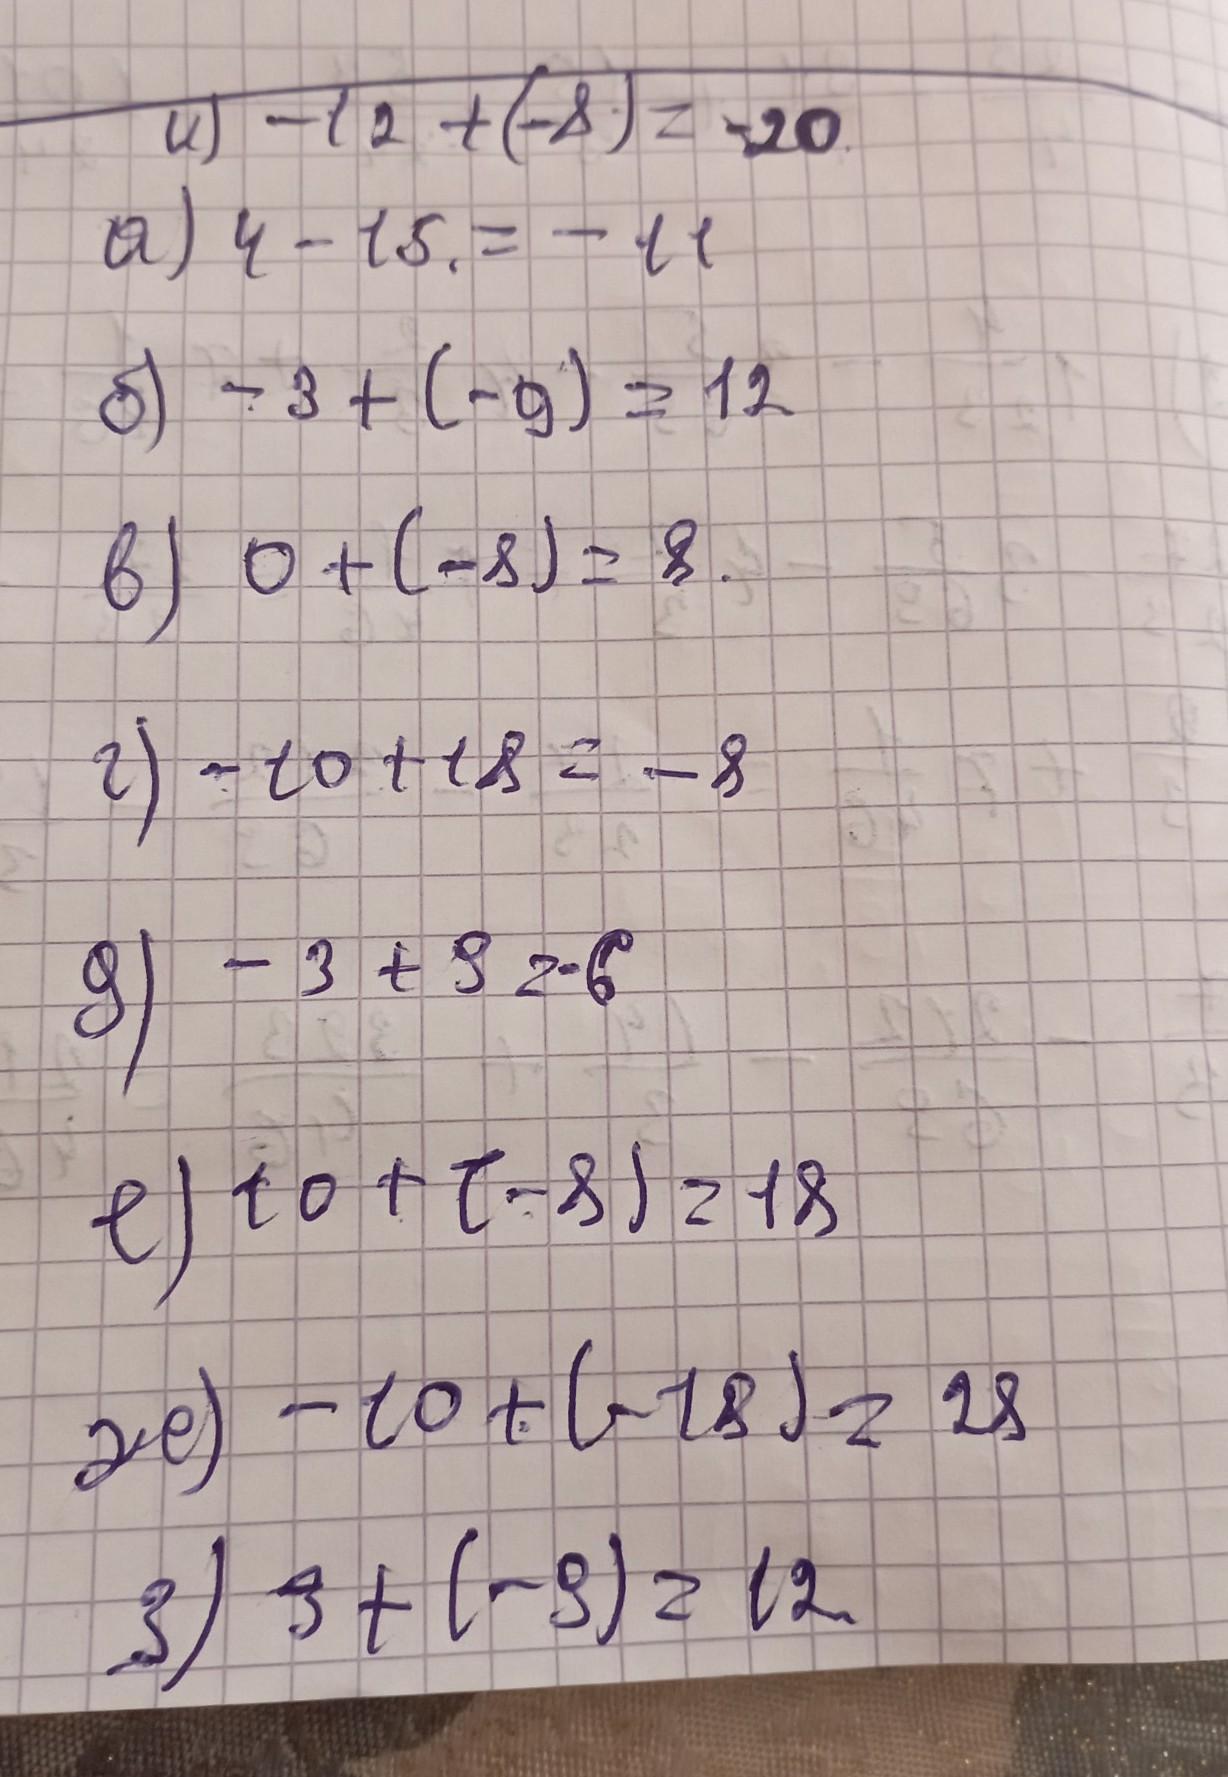 и) -12 + (-8) = -20
а) 4 - 15. = - 11
б) - 3 + (-9) = 12
в) 0 + (-8) = 8.
г) -10 + 18 = - 8
д) - 3 + 9 = -6
е) 10 + (-8) = 18
ж) - 10 + (-18) = 28
з) 3 + (-9) = 12